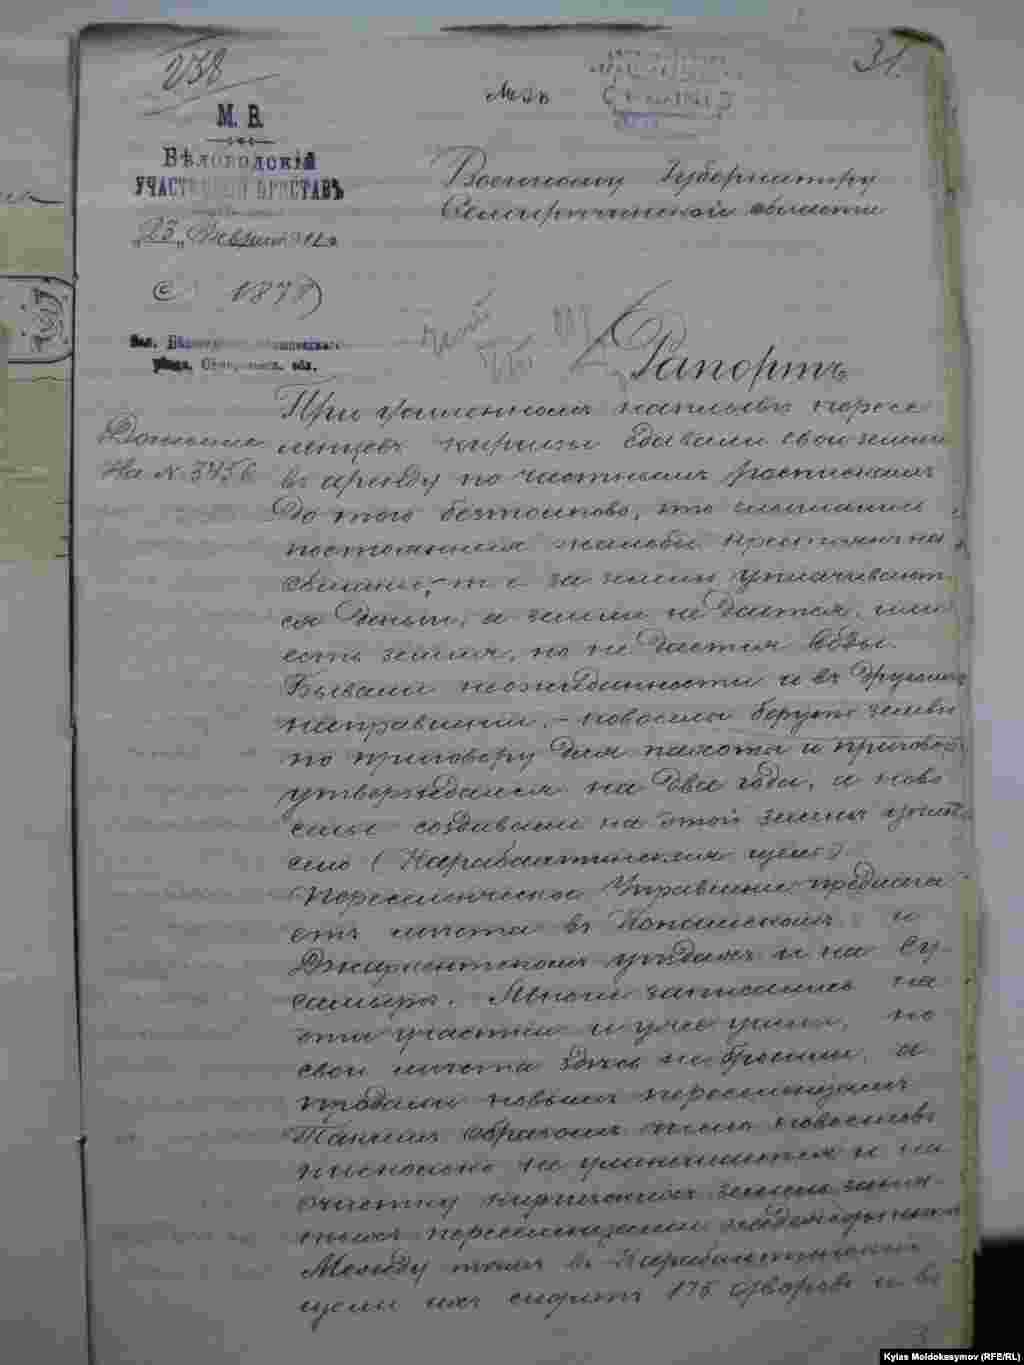 238
31.
М. В.
Бѣловодскій
УЧАСТКОВЫЙ ПРИСТАВЪ
„23„ Февраля
1877
Военному Губернатору
Семирѣченской области
Рапортъ
Донесение
На N. 3456
При усиленномъ наплывѣ пересе-
ленцевъ киргизы сдавали свои земли
въ аренду по частнымъ роспискамъ
до того безтолково, что
постоянныя жалобы крестьянъ на
обманы, – т. е. за землю уплачивают-
ся деньги, а земли не дается, или
есть земля, но не дается воды.
Бывали неожиданности и въ другомъ
направлении, – новоселы берутъ землю
по приговору для пахоты и приговоръ
утверждался на два года, а ново-
селы создавали на этой земле целое
село (Карабалтинская щель).
Переселенческое Управление предлага-
етъ места въ Копальскомъ и
Джаркентскомъ уѣздахъ и на Су-
самыръ. Многие записались на
эти участки и уже ушли, но
свои места здесь не бросили, а
продали новымъ переселенцамъ
Такимъ образомъ число новоселовъ
нисколько не уменьшается и на
очистку киргизскихъ земель заня-
тыхъ переселенцами надежды нетъ
Между темъ въ Карабалтинской
щели ихъ сидитъ 175 дворовъ и въ
Kylas Moldokasymov (RFE/RL)